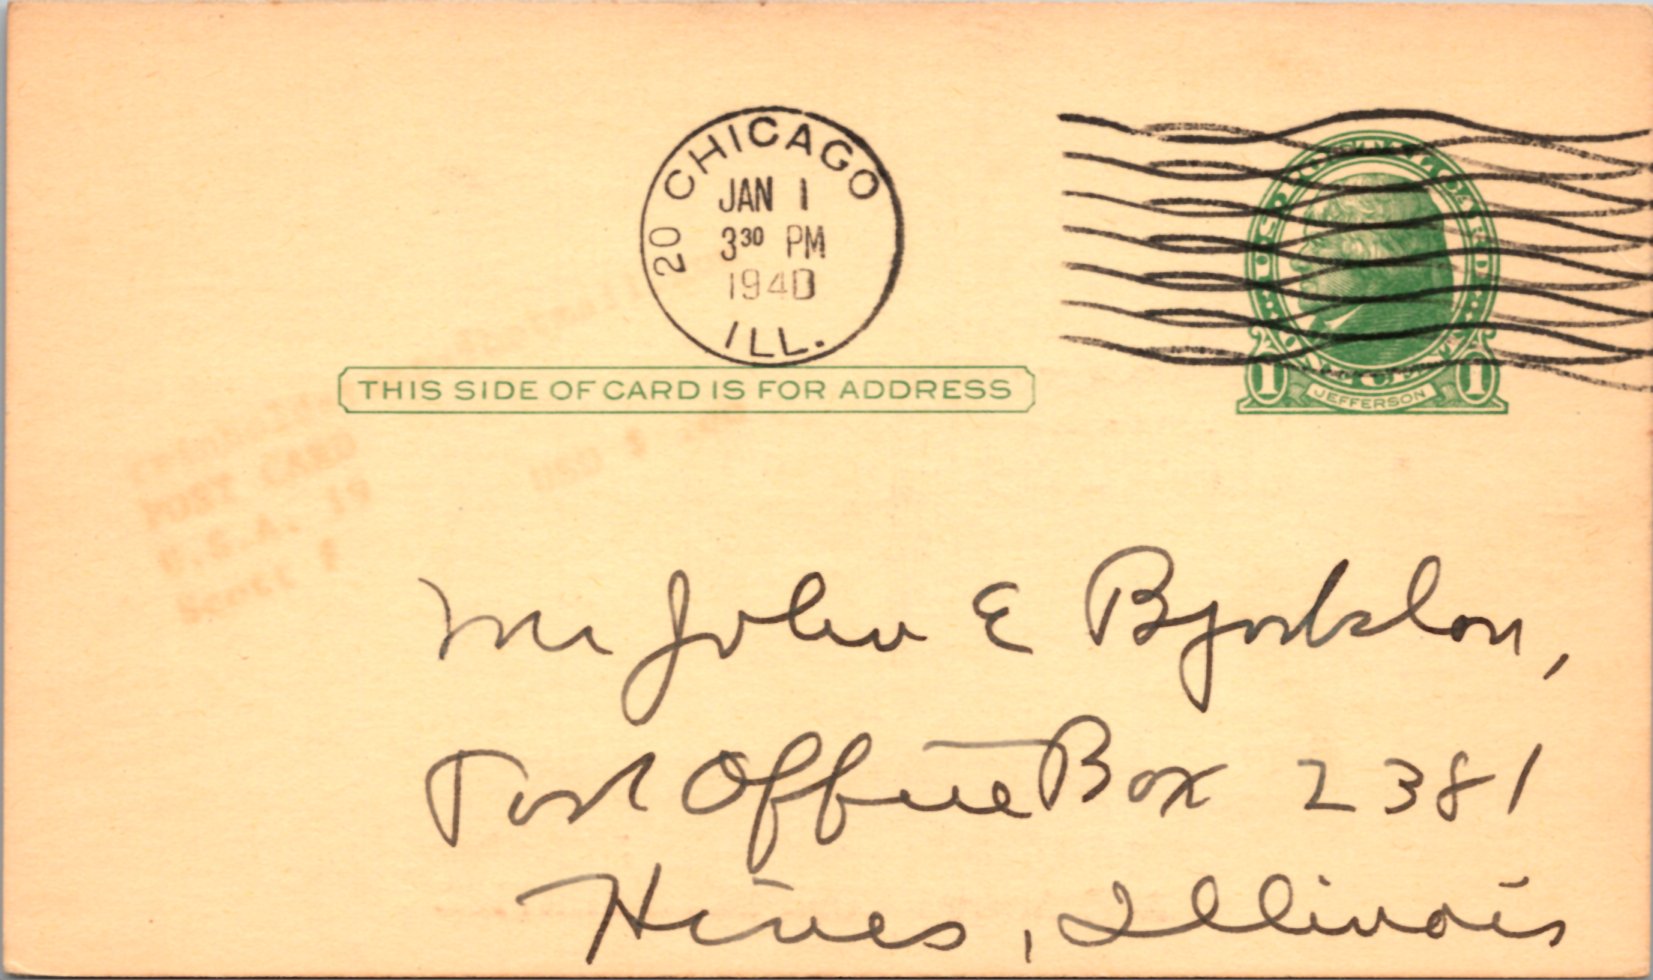 20 CHICAGO
JAN 1
3 30 PM
1940
ILL.
THIS SIDE OF CARD IS FOR ADDRESS
1 JEFFERSON 1
POST CARD
U.S.A. 19
Scott
USD $
Mr John E Bjorklon,
Post Office Box 2381
Hines, Illinois